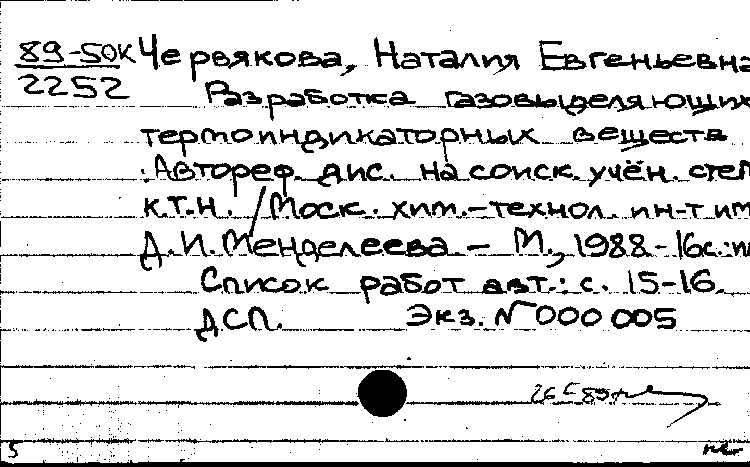 89-50К Червякова, Наталия Евгеньевна
2252
Разработка газовыделяющих
термоиндикаторных веществ
: Автореф. дис. на соиск. учён. степ
к.т.н. / Моск. хим.-технол. ин-т им
Д.И. Менделеева. – М., 1988 - 16с.:
Список работ авт.: с. 15-16.
ДСП. Экз. N 000 005
5